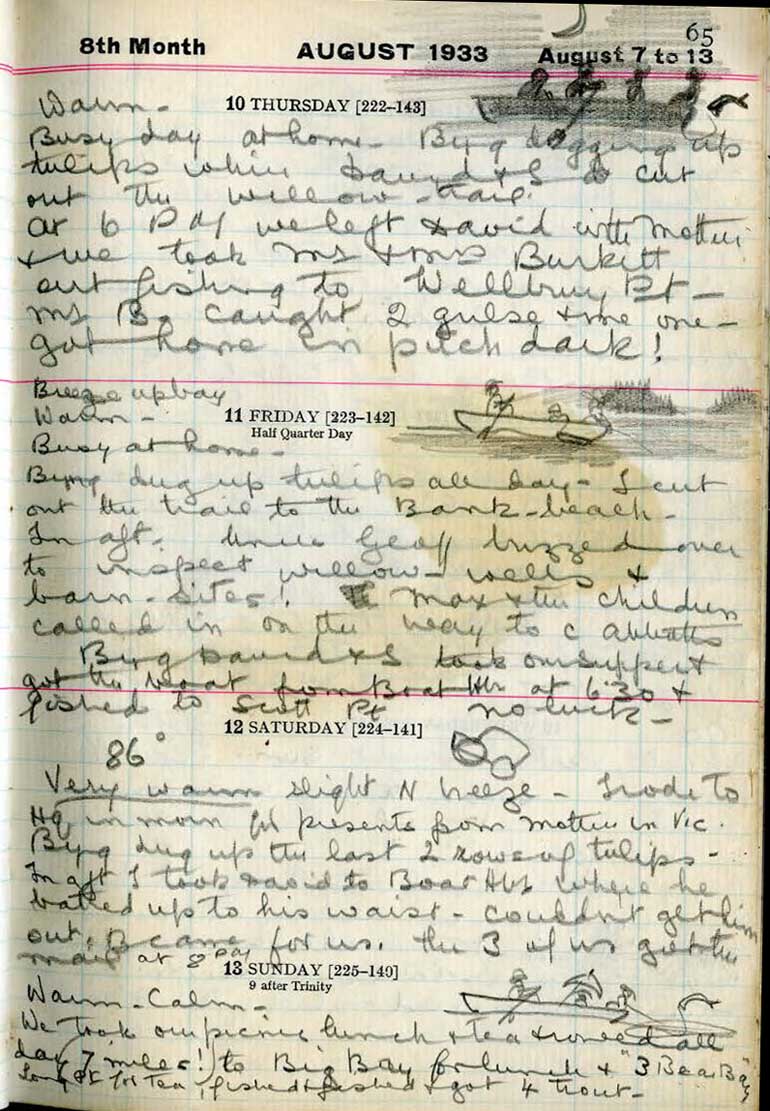 65
8th Month AUGUST 1933 August 7 to 13
Warm - 10 THURSDAY [222–143]
Busy day at home - Byng digging up
tulips while David & I cut
out the willow - trail.
At 6 PM we left David with Mother
& we took Mr & Mrs Burkitt
out fishing to Wellbury Pt -
Mr B. caught 2 gulse & me one -
got home in pitch dark!
Breeze up bay
Warm - 11 FRIDAY [223–142]
Half Quarter Day
Busy at home -
Byng dug up tulips all day - I cut
out the trail to the Bank - beach -
In aft. Uncle Geoff buzzed over
to inspect willow - wells &
barn - sites! Max & the children
called in on the way to C Abbotts
Byng David & I took our supper &
got the boat from Boat Hbr at 6.30 &
fished to Scott Pt no luck -
12 SATURDAY [224–141]
86°
Very warm slight N breeze - I rode to
Hq in morn for presents from Mother in Vic.
Byng dug up the last 2 rows of tulips -
In aft I took David to Boat Hbr where he
bathed up to his waist - couldn't get him
out. B came for us. The 3 of us got the
mail at 8 PM
13 SUNDAY [225–140]
9 after Trinity
Warm - Calm -
We took our picnic lunch & tea & rowed all
day (7 miles!) to Big Bay for lunch & "3 Bear Bay"
for tea, fished & fished & got 4 trout -